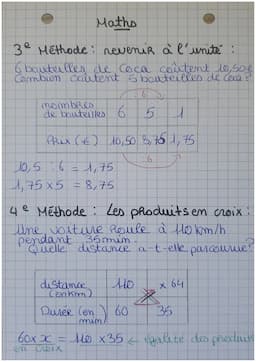 Maths
3e Méthode : revenir à l'unité :
6 bouteilles de Coca coûtent 10,50€
Combien coûtent 5 bouteilles de Coca ?
: 6
nombres de bouteilles 6 5 1
Prix (€) 10,50 8,75 1,75
: 6
10,5 : 6 = 1,75
1,75 x 5 = 8,75
4e Méthode : Les produits en croix :
Une voiture roule à 110 km/h
pendant 35 min.
Quelle distance a-t-elle parcourue ?
distance (en km) 110 x 64
Durée (en min) 60 35
60 x x = 110 x 35 ← égalité des produits
en croix